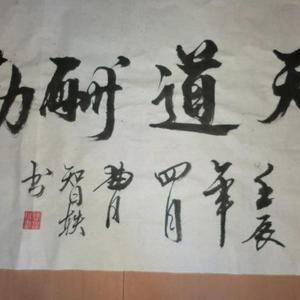 天道酬勤
壬辰
年
四月
智
书